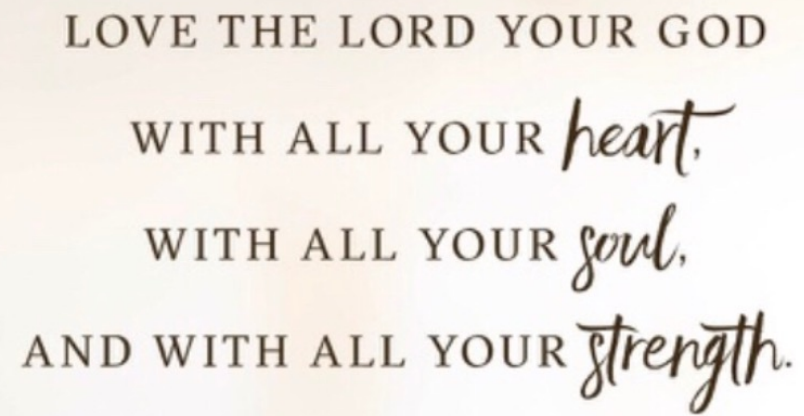 LOVE THE LORD YOUR GOD
WITH ALL YOUR heart,
WITH ALL YOUR soul,
AND WITH ALL YOUR strength.